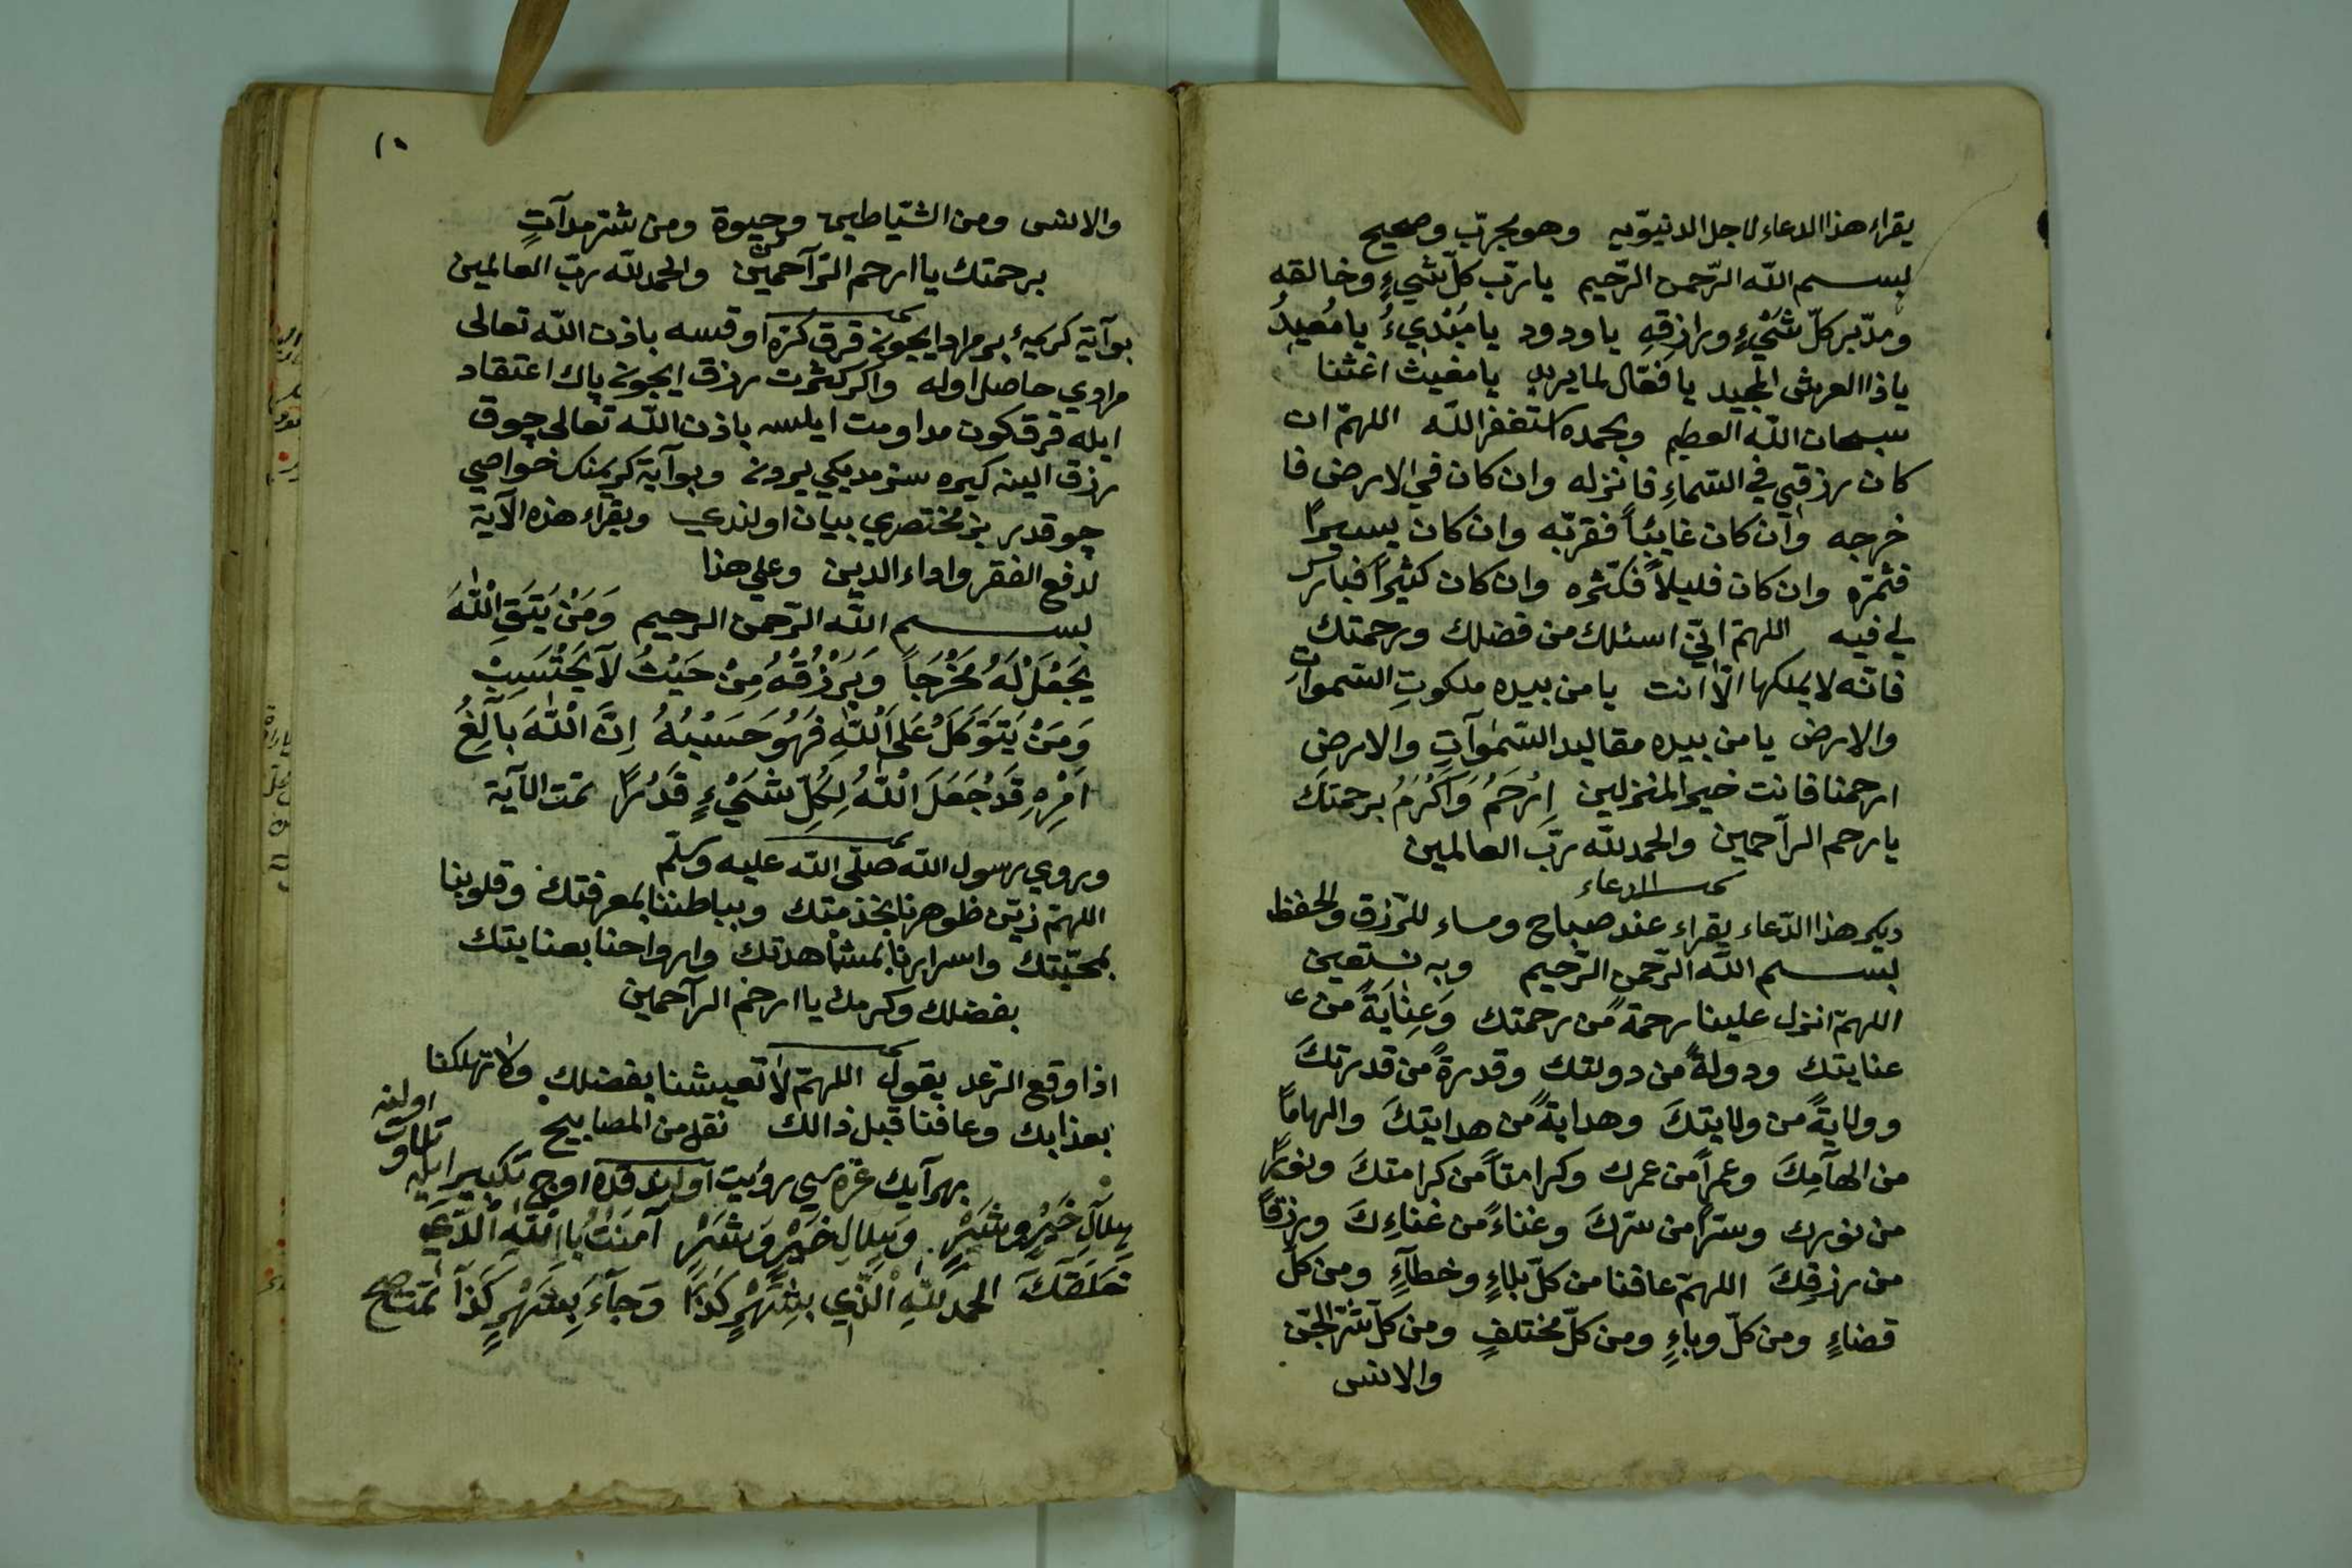 يقراء هذا الدعاء لاجل الدنيوّيه وهو مجرّب وصحيح
بسم الله الرّحمن الرّحيم يا ربّ كلّ شيءٍ وخالقه
ومدّبر كلّ شَيْءٍ ورازقِهِ يا ودود يا مُبْدِيءُ يا مُعيدُ
ياذا العرش المجيد يا فعّال لما يريد يا مغيث اغثنا
سبحان الله العظيم وبحمده استغفر الله اللهمّ ان
كان رزقي في السّماءِ فانزله وان كان في الارض فا
خرجه وان كان غايبًا فقرّبه وان كان يسيرًا
فثمّره وان كان قليلاً فكثّره وان كان كثيرًا فبارك
لي فيه اللهمّ انّي اسئلك من فضلك ورحمتك
فانّه لا يملكها الّا انت يا من بيده ملكوت السّموات
والارض يا من بيده مقاليد السّموآتِ والارضِ
ارحمنا فانت خير المنزلين اِرْحَمُ وَاَكْرَمُ برحمتكَ
يا رحم الرآحمين والحمد لله ربّ العالمين
الدعاء
ديكر هذا الدّعاء يقراء عند صباح ومساء للرّزق والحفظ
بسم الله الرّحمن الرّحيم وبه نستعين
اللهمّ انزل علينا رحمةً من رحمتك وَعِنَايَةً من
عنايتك ودولةً من دولتك وقدرةً من قدرتكَ
وولايةً من ولايتكَ وهدايةً من هدايتكَ والهامًا
من الهآمِكَ وعمرًا من عمرك وكرامتاً من كرامتكَ ونورًا
من نورك وسترًا من سترك وغناءً من غناءِكَ ورزقاً
من رزقِكَ اللهمّ عافنا من كلّ بلاءٍ وخطآءٍ ومن كلّ
قضاءٍ ومن كلّ وباءٍ ومن كلّ مختلفٍ ومن كلّ شرّ الجنّ
والانس
١٠
والانس ومن الشّياطين وحيوة ومن شرّ مدآتٍ
برحمتك يا ارحم الرّآحمين والحمد لله ربّ العالمين
بو آية كريمهٔ بر مراد ايچون قرق كرّه اوقسه باذن الله تعالى
مرادي حاصل اوله واكر كثرت رزق ايچون پاك اعتقاد
ايله قرق كون مداومت ايلسه باذن الله تعالى چوق
رزق الينه كيره سنز مديكي يردن وبو آية كريمنك خواصي
چوقدر بز مختصري بيان اولندي ويقراء هذه الآية
لدفع الفقر واداء الدين وعلي هذا
بسم الله الرّحمن الرحيم وَمَنْ يَتَّقِ اللّٰهَ
يَجْعَلْ لَهُ مَخْرَجًا وَيَرْزُقْهُ مِنْ حَيْثُ لَا يَحْتَسِبْ
وَمَنْ يَتَوَكَّلْ عَلَى اللّٰهِ فَهُوَ حَسْبُهُ اِنَّ اللّٰهَ بَالِغُ
اَمْرِهِ قَدْ جَعَلَ اللّٰهُ لِكُلِّ شَيْءٍ قَدْرًا تمت الآية
وروي رسول الله صلّى الله عليه وسلّم
اللهمّ زيّن ظوهرنا بخذمتك وبباطننا بمعرفتك وقلوبنا
بمحبّتك واسرارنا بمشاهدتك وارواحنا بعنايتك
بفضلك وكرمك يا ارحم الرآحمين
اذا وقع الرّعد يقول اللهمّ لا تعيشنا بفضلك ولا تهلكنا
بعذابك وعافنا قبل ذالك نقل من المصابيح
بهر آيك غرّه سي رؤيت اولندقده اوچ تكبير ايله تلاوت اولنه
هِلَالِ خَيْرٍ وشَرٍّ وهِلَالِ خَيْرٍ وَشَرٍّ آمَنْتُ بِااللّٰهِ الَّذِي
خَلَقَكَ الحمد للّٰهِ الَّذِي بِشَهْرٍ كَذَا وَجَآءَ بِشَهْرٍ كَذَا تمت صح